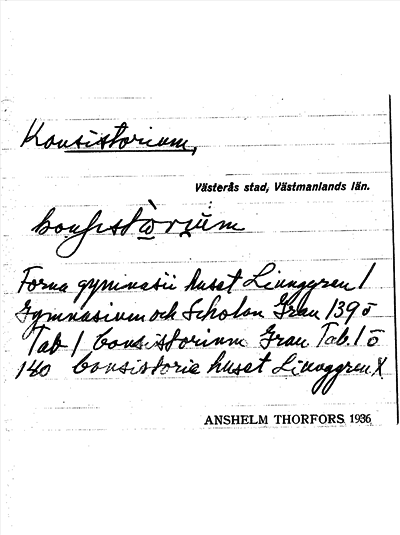 Konsistorium,
Västerås stad, Västmanlands län.
consistòrıum
Forna gymnasii huset Liunggren I
Gymnasium och Scholan Grau 139 ö
Tab I Consistorium Grau Tab. I ö
140 Consistorie huset Liunggren X
ANSHELM THORFORS 1936